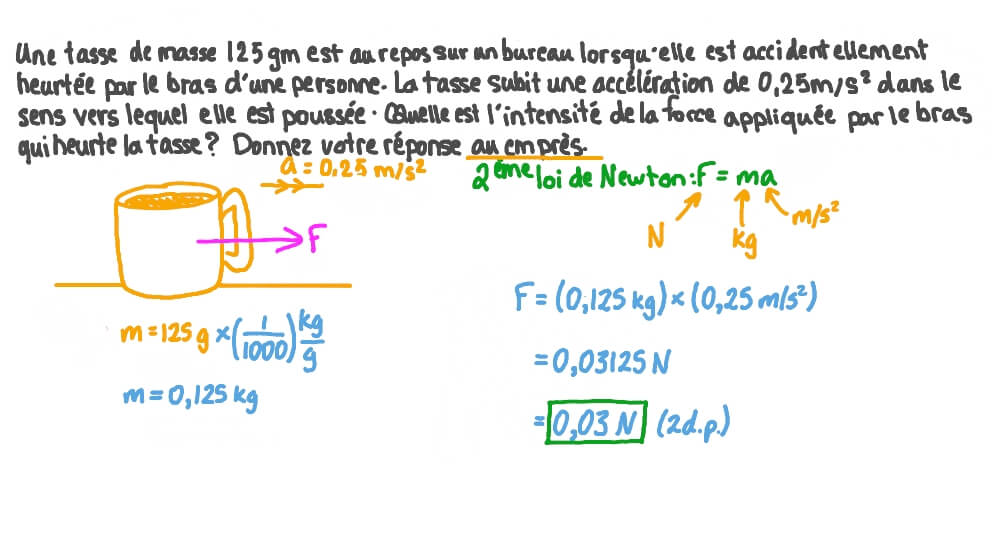 Une tasse de masse 125 gm est au repos sur un bureau lorsqu'elle est accidentellement
heurtée par le bras d'une personne. La tasse subit une accélération de 0,25 m/s² dans le
sens vers lequel elle est poussée. Quelle est l'intensité de la force appliquée par le bras
qui heurte la tasse? Donnez votre réponse au cm près.
a = 0.25 m/s²
2ème loi de Newton: F = ma
N kg m/s²
F
m = 125 g × (1/1000) kg/g
m = 0,125 kg
F = (0,125 kg) × (0,25 m/s²)
= 0,03125 N
= 0,03 N (2 d.p.)